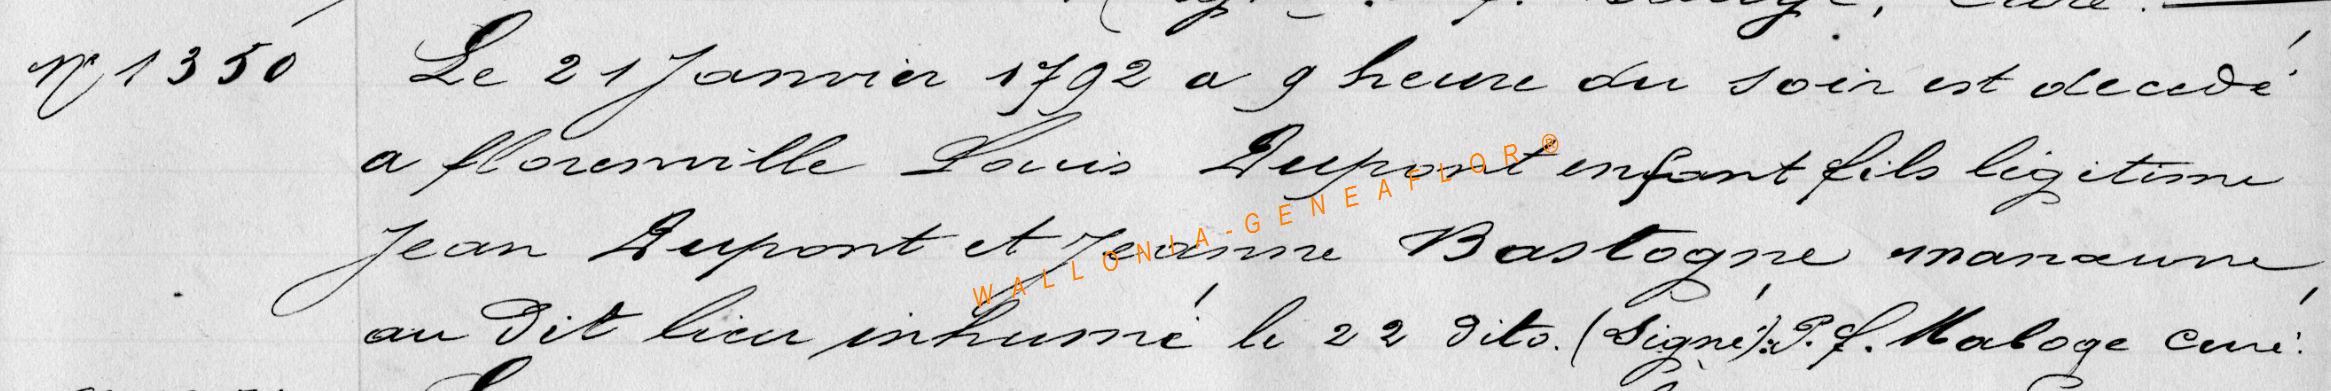 N° 1350 Le 21 Janvier 1792 a 9 heure du soir est decedé
a florenville Louis Dupont enfant fils legitime
Jean Dupont et Jeanne Bastogne
au dit lieu inhumé le 22 dito. (Signé): P. f. Maloge curé.
WALLONIA-GENEAFLOR®